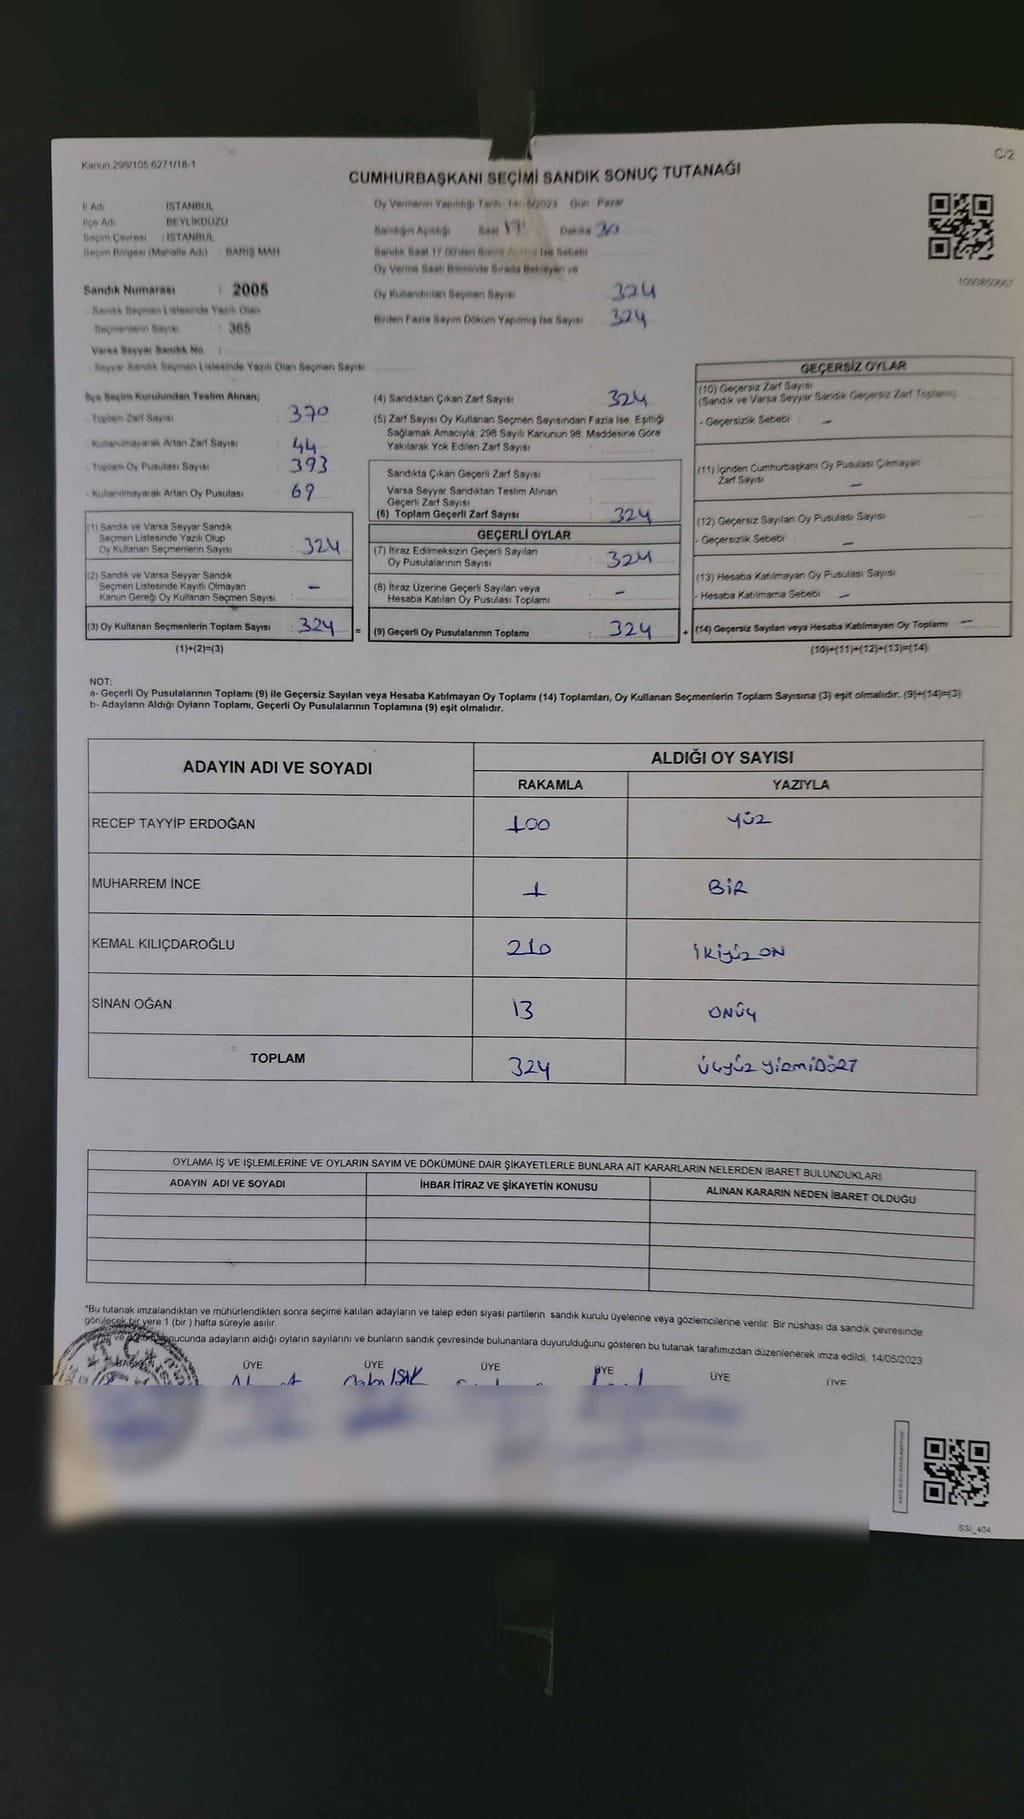 Kanun.298/105.6271/18-1
C/2
CUMHURBAŞKANI SEÇİMİ SANDIK SONUÇ TUTANAĞI
İl Adı : İSTANBUL
İlçe Adı : BEYLİKDÜZÜ
Seçim Çevresi : İSTANBUL
Seçim Bölgesi (Mahalle Adı) : BARIŞ MAH
Sandık Numarası : 2005
- Sandık Seçmen Listesinde Yazılı Olan
Seçmenlerin Sayısı : 365
Varsa Seyyar Sandık No :
- Seyyar Sandık Seçmen Listesinde Yazılı Olan Seçmen Sayısı:
Oy Vermenin Yapıldığı Tarih 14/ 5/2023 Gün: Pazar
Sandığın Açıldığı Saat 17 Dakika 30
Sandık Saat 17.00'den Sonra İse Sebebi
Oy Verme Saati Bitiminde Sırada Bekleyen ve
Oy Kullandırılan Seçmen Sayısı 324
Birden Fazla Sayım Döküm Yapılmış İse Sayısı 324
İlçe Seçim Kurulundan Teslim Alınan;
- Toplam Zarf Sayısı : 370
- Kullanılmayarak Artan Zarf Sayısı : 44
- Toplam Oy Pusulası Sayısı : 393
- Kullanılmayarak Artan Oy Pusulası : 69
(1) Sandık ve Varsa Seyyar Sandık
Seçmen Listesinde Yazılı Olup
Oy Kullanan Seçmenlerin Sayısı : 324
(2) Sandık ve Varsa Seyyar Sandık
Seçmen Listesinde Kayıtlı Olmayan
Kanun Gereği Oy Kullanan Seçmen Sayısı : –
(3) Oy Kullanan Seçmenlerin Toplam Sayısı : 324 =
(1)+(2)=(3)
(4) Sandıktan Çıkan Zarf Sayısı : 324
(5) Zarf Sayısı Oy Kullanan Seçmen Sayısından Fazla İse, Eşitliği
Sağlamak Amacıyla; 298 Sayılı Kanunun 98. Maddesine Göre
Yakılarak Yok Edilen Zarf Sayısı :
Sandıkta Çıkan Geçerli Zarf Sayısı :
Varsa Seyyar Sandıktan Teslim Alınan
Geçerli Zarf Sayısı :
(6) Toplam Geçerli Zarf Sayısı : 324
GEÇERLİ OYLAR
(7) İtiraz Edilmeksizin Geçerli Sayılan
Oy Pusulalarının Sayısı : 324
(8) İtiraz Üzerine Geçerli Sayılan veya
Hesaba Katılan Oy Pusulası Toplamı : –
(9) Geçerli Oy Pusulalarının Toplamı : 324 +
GEÇERSİZ OYLAR
(10) Geçersiz Zarf Sayısı
(Sandık ve Varsa Seyyar Sandık Geçersiz Zarf Toplamı)
- Geçersizlik Sebebi : –
(11) İçinden Cumhurbaşkanı Oy Pusulası Çıkmayan
Zarf Sayısı –
(12) Geçersiz Sayılan Oy Pusulası Sayısı
- Geçersizlik Sebebi –
(13) Hesaba Katılmayan Oy Pusulası Sayısı
- Hesaba Katılmama Sebebi –
(14) Geçersiz Sayılan veya Hesaba Katılmayan Oy Toplamı –
(10)+(11)+(12)+(13)=(14)
NOT:
a- Geçerli Oy Pusulalarının Toplamı (9) ile Geçersiz Sayılan veya Hesaba Katılmayan Oy Toplamı (14) Toplamları, Oy Kullanan Seçmenlerin Toplam Sayısına (3) eşit olmalıdır. (9)+(14)=(3)
b- Adayların Aldığı Oyların Toplamı, Geçerli Oy Pusulalarının Toplamına (9) eşit olmalıdır.
ADAYIN ADI VE SOYADI ALDIĞI OY SAYISI
RAKAMLA YAZIYLA
RECEP TAYYİP ERDOĞAN 100 YÜZ
MUHARREM İNCE 1 BİR
KEMAL KILIÇDAROĞLU 210 İKİYÜZ ON
SİNAN OĞAN 13 ONÜÇ
TOPLAM 324 ÜÇYÜZ YİRMİDÖRT
OYLAMA İŞ VE İŞLEMLERİNE VE OYLARIN SAYIM VE DÖKÜMÜNE DAİR ŞİKAYETLERLE BUNLARA AİT KARARLARIN NELERDEN İBARET BULUNDUKLARI
ADAYIN ADI VE SOYADI İHBAR İTİRAZ VE ŞİKAYETİN KONUSU ALINAN KARARIN NEDEN İBARET OLDUĞU
*Bu tutanak imzalandıktan ve mühürlendikten sonra seçime katılan adayların ve talep eden siyasi partilerin sandık kurulu üyelerine veya gözlemcilerine verilir. Bir nüshası da sandık çevresinde
görülecek bir yere 1 (bir ) hafta süreyle asılır.
adayların aldığı oyların sayılarını ve bunların sandık çevresinde bulunanlara duyurulduğunu gösteren bu tutanak tarafımızdan düzenlenerek imza edildi. 14/05/2023
ÜYE ÜYE ÜYE ÜYE ÜYE ÜYE
SSI_404